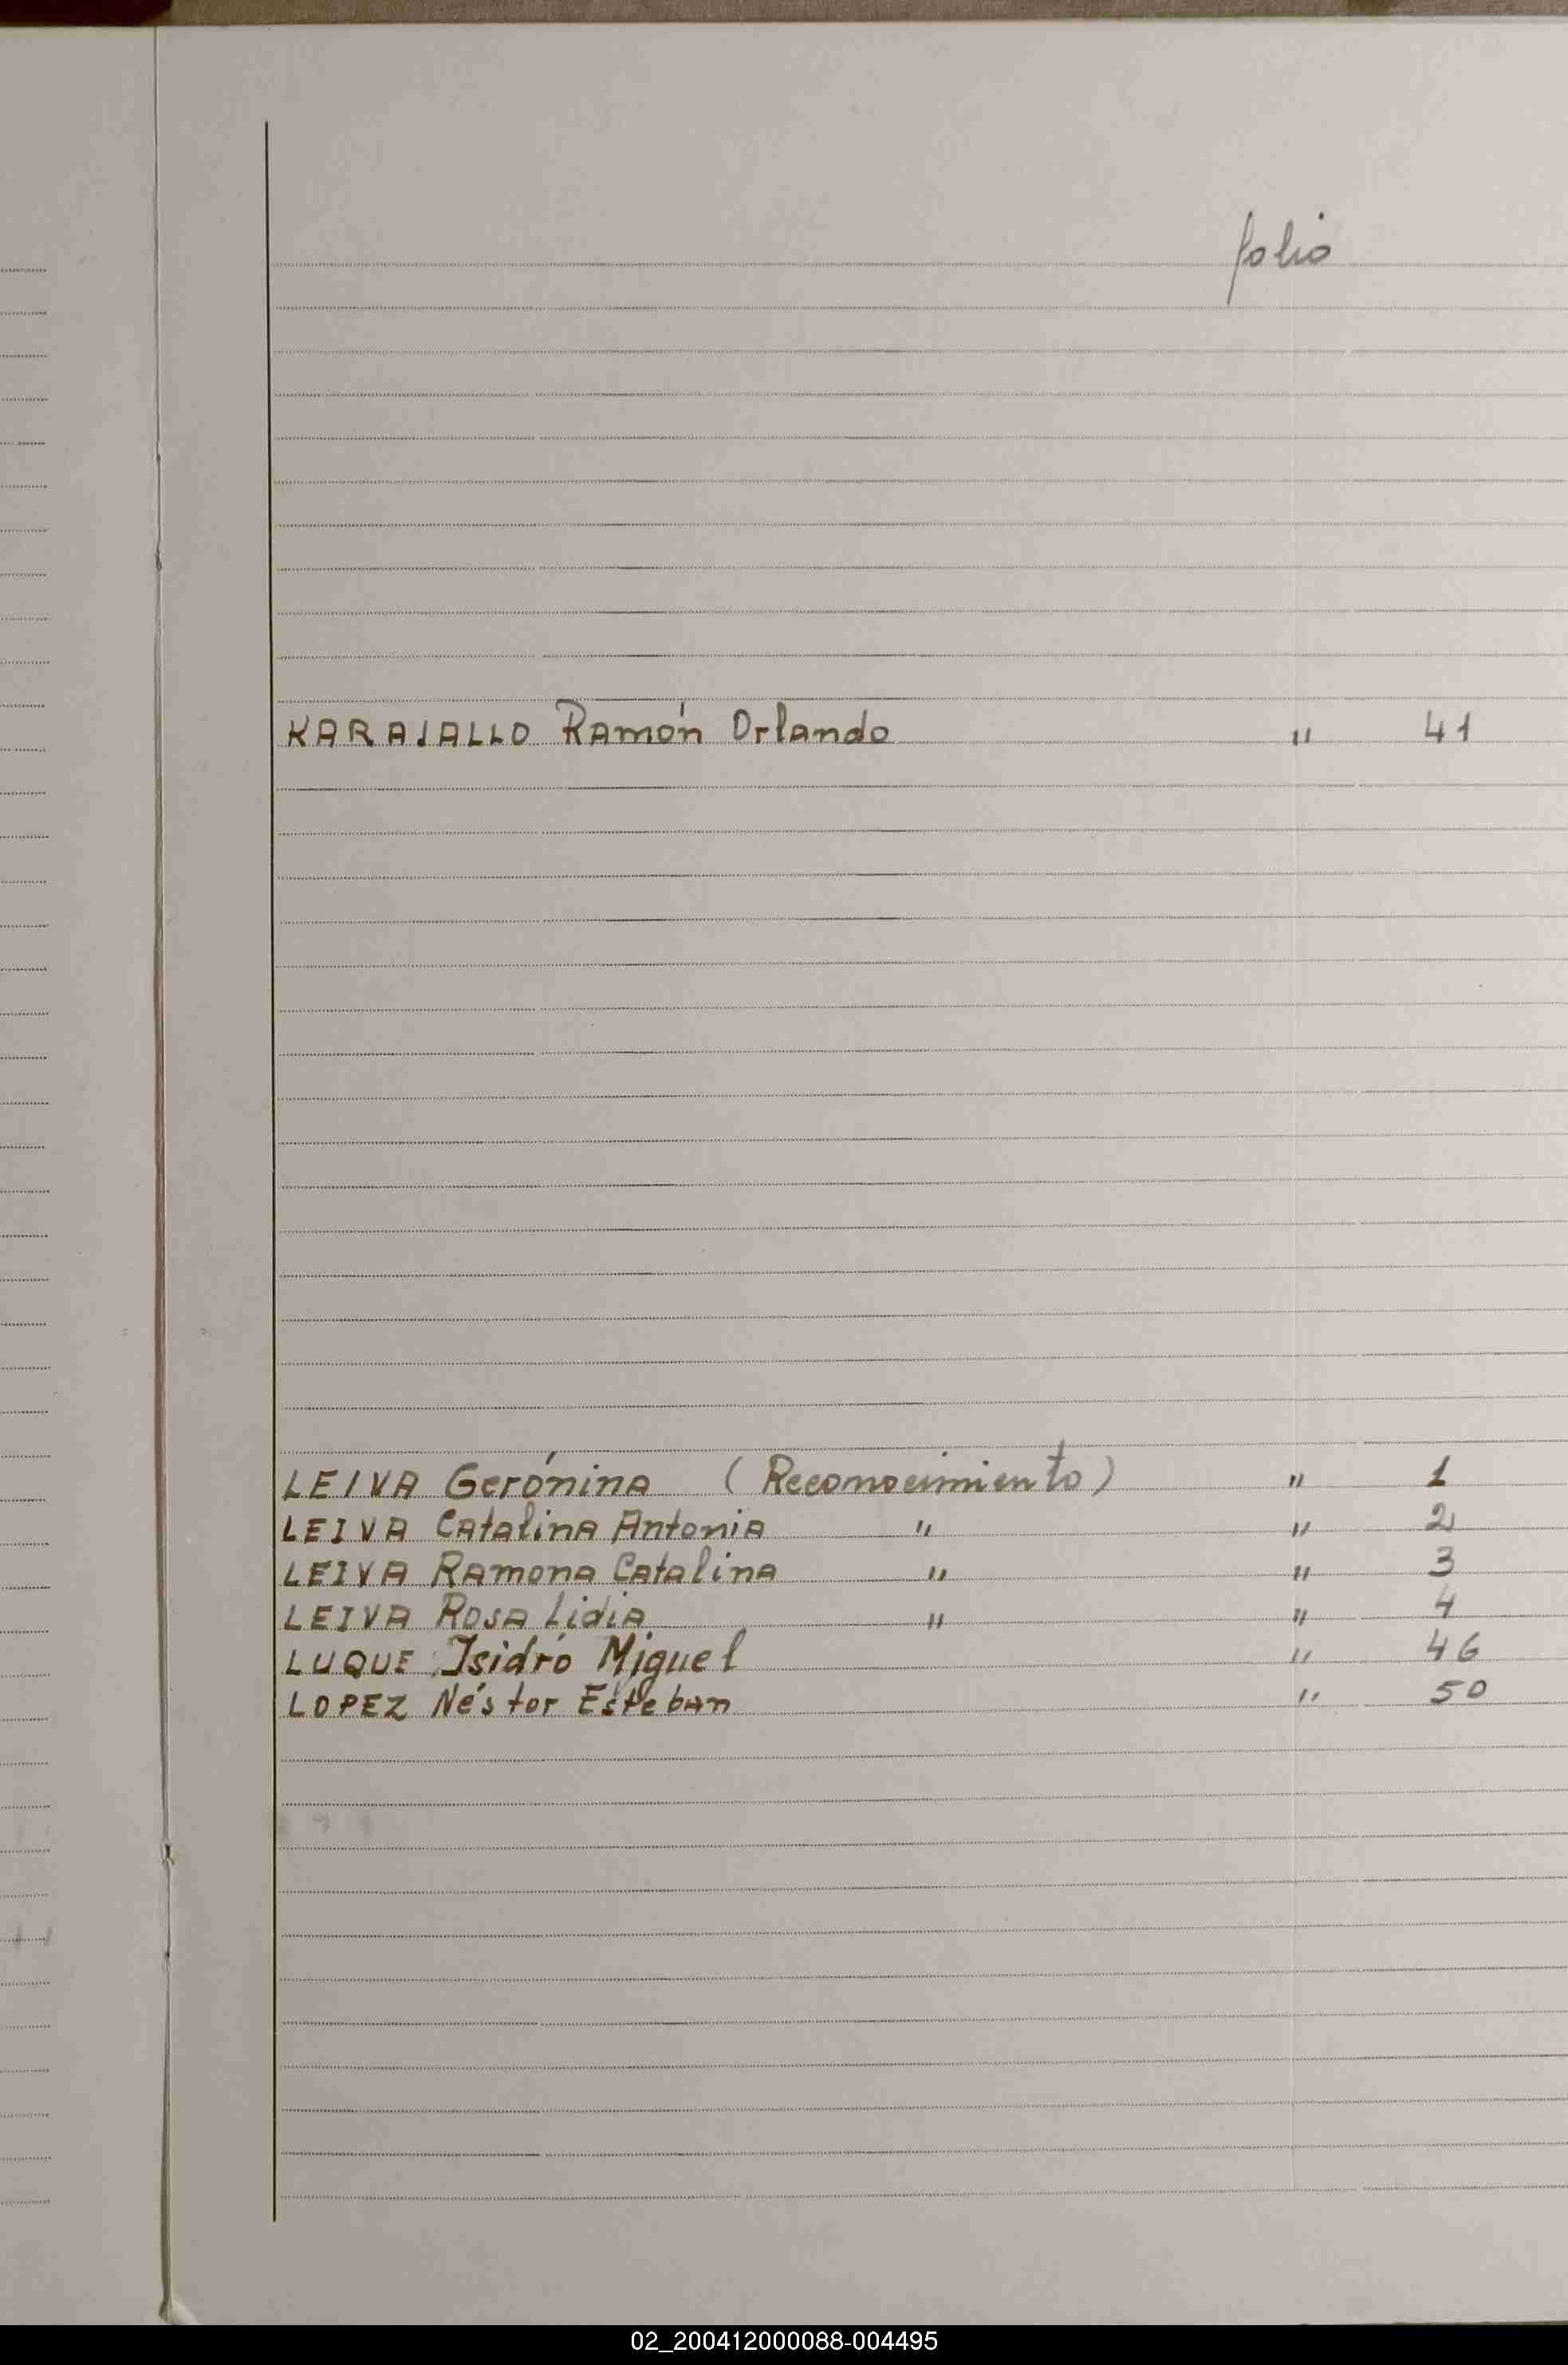 folio
KARAJALLO Ramón Orlando " 41
LEIVA Gerónina (Reconocimiento) " 1
LEIVA Catalina Antonia " " 2
LEIVA Ramona Catalina " " 3
LEIVA Rosa Lidia " " 4
LUQUE Isidro Miguel " 46
LOPEZ Néstor Esteban " 50
02_200412000088-004495